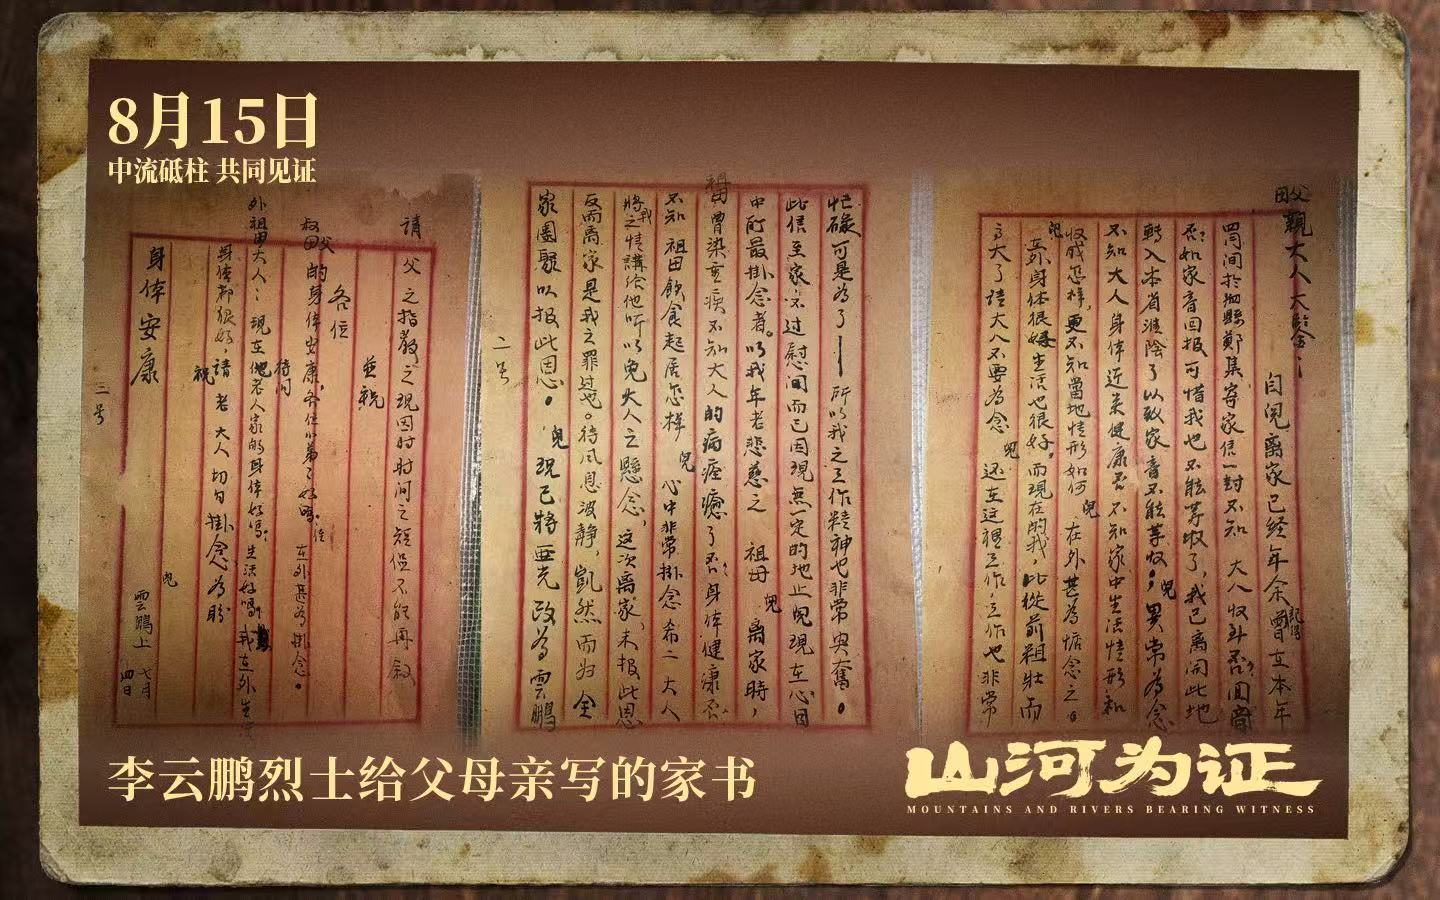 8月15日
中流砥柱 共同见证
父母親大人大鉴:
自兒离家已經年余曾記得在本年
四月间於泗縣鄭集寄家信一封不知 大人收到否?回
否?如家音回报可惜我也不能等收了,我已离開此地
轉入本省淮陰了以致家音不能等收,兒異常為念
不知大人身体近来健康否 不知家中生活情形和
收成怎样,更不知當地情形如何 兒在外甚為惦念之
兒身体很好生活也很好。而現在的我,比從前粗壮而
高大了請大人不要為念 兒还在這裡工作,工作也非常
忙碌可是為了——所以我之工作精神也非常興奮。
此信至家不过慰问而已因現無一定的地止兒現在心因
中所最掛念者。以我年老悲慈之 祖母 兒离家時,
祖母曾染重疾不知大人的病痊癒了否?身体健康否
不知 祖母飲食起居怎样 兒心中非常掛念希二大人
將我之情講给他听以免大人之懸念,这次离家,未报此恩
反而离家是我之罪过也。待风息波静,凱然而归全
家團聚以报此恩。兒現已將亜光改為雲鵬
二号
請父之指教之現因时时间之短促不能再敘
並祝
各位
叔父母的身体安康,各位小弟子好嗎 在外甚為掛念。
待问
外祖母大人:現在他老人家的身体好嗎?生活好嗎?我在外生活
身体都很好,請老大人切勿掛念為盼
祝
身体安康
兒雲鵬上 七月四日
三号
李云鹏烈士给父母亲写的家书
山河为证
MOUNTAINS AND RIVERS BEARING WITNESS